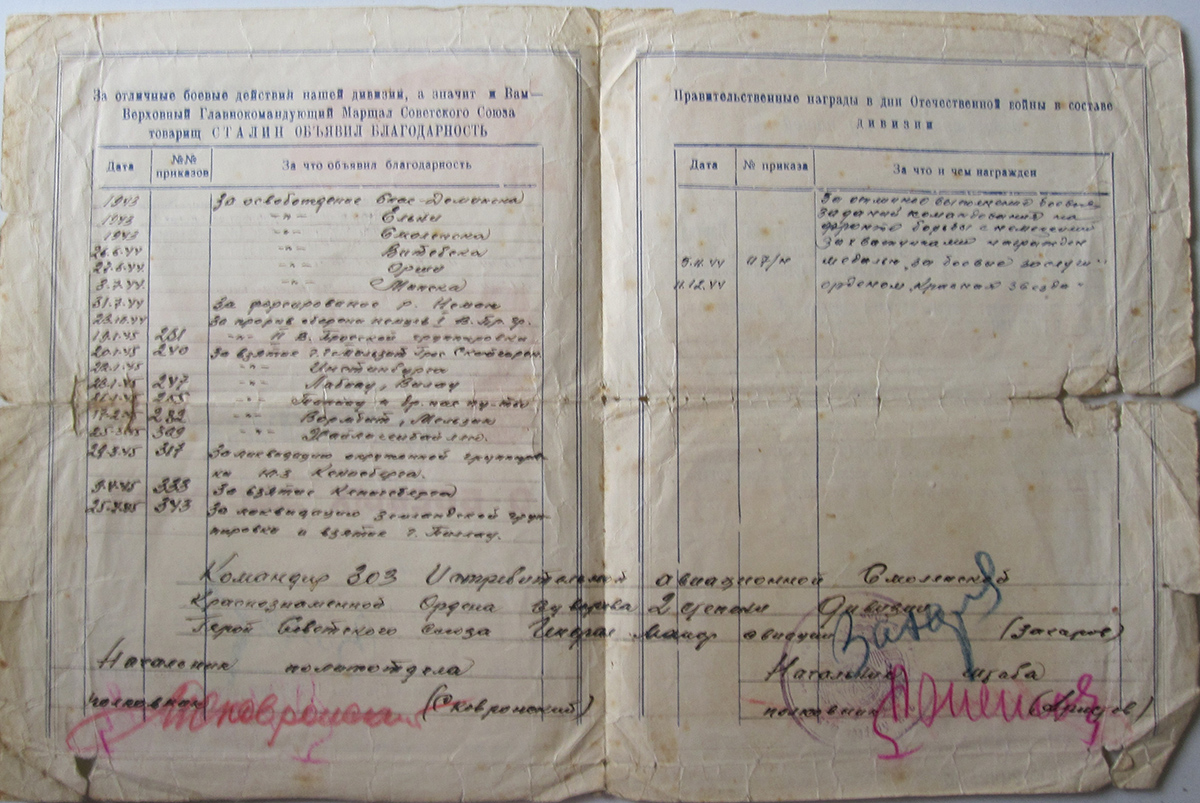 За отличные боевые действия нашей дивизии, а значит и Вам—
Верховный Главнокомандующий Маршал Советского Союза
товарищ СТАЛИН ОБЪЯВИЛ БЛАГОДАРНОСТЬ
Дата №№ приказов За что объявил благодарность
1943 За освобождение Спас-Деменска
1943 -"- Ельни
1943 -"- Смоленска
26.6.44 -"- Витебска
27.6.44 -"- Орши
3.7.44 -"- Минска
31.7.44 За форсирование р. Неман
23.10.44 За прорыв обороны немцев в В. Пр. гр.
19.1.45 231 -"- В. Прусской группировки
20.1.45 240 За взятие
22.1.45 -"- Инстенбурга
247 -"- Лабиау, Велау
-"-
17.2.45 282 -"- Вормдит, Мельзак
25.3.45 309 -"-
29.3.45 317 За ликвидацию окруженной группиров-
ки ю.з Кенисберга.
9.4.45 333 За взятие Кенигсберга
25.4.45 343 За ликвидацию Земландской груп-
пировки и взятие г. Пиллау.
Правительственные награды в дни Отечественной войны в составе
дивизии
Дата № приказа За что и чем награжден
За отличное выполнение боевых
заданий командования на
фронте борьбы с немецкими
захватчиками награжден
5.11.44 17/н медалью "за боевые заслуги"
11.12.44 орденом "Красная звезда"
Командир 303 Истребительной авиационной Смоленской
Краснознаменной Ордена Суворова 2 степени Дивизии
Герой Советского Союза Генерал Майор авиации (Захаров)
Начальник политотдела
полковник (Сковронский)
Начальник штаба
полковник (Аристов)